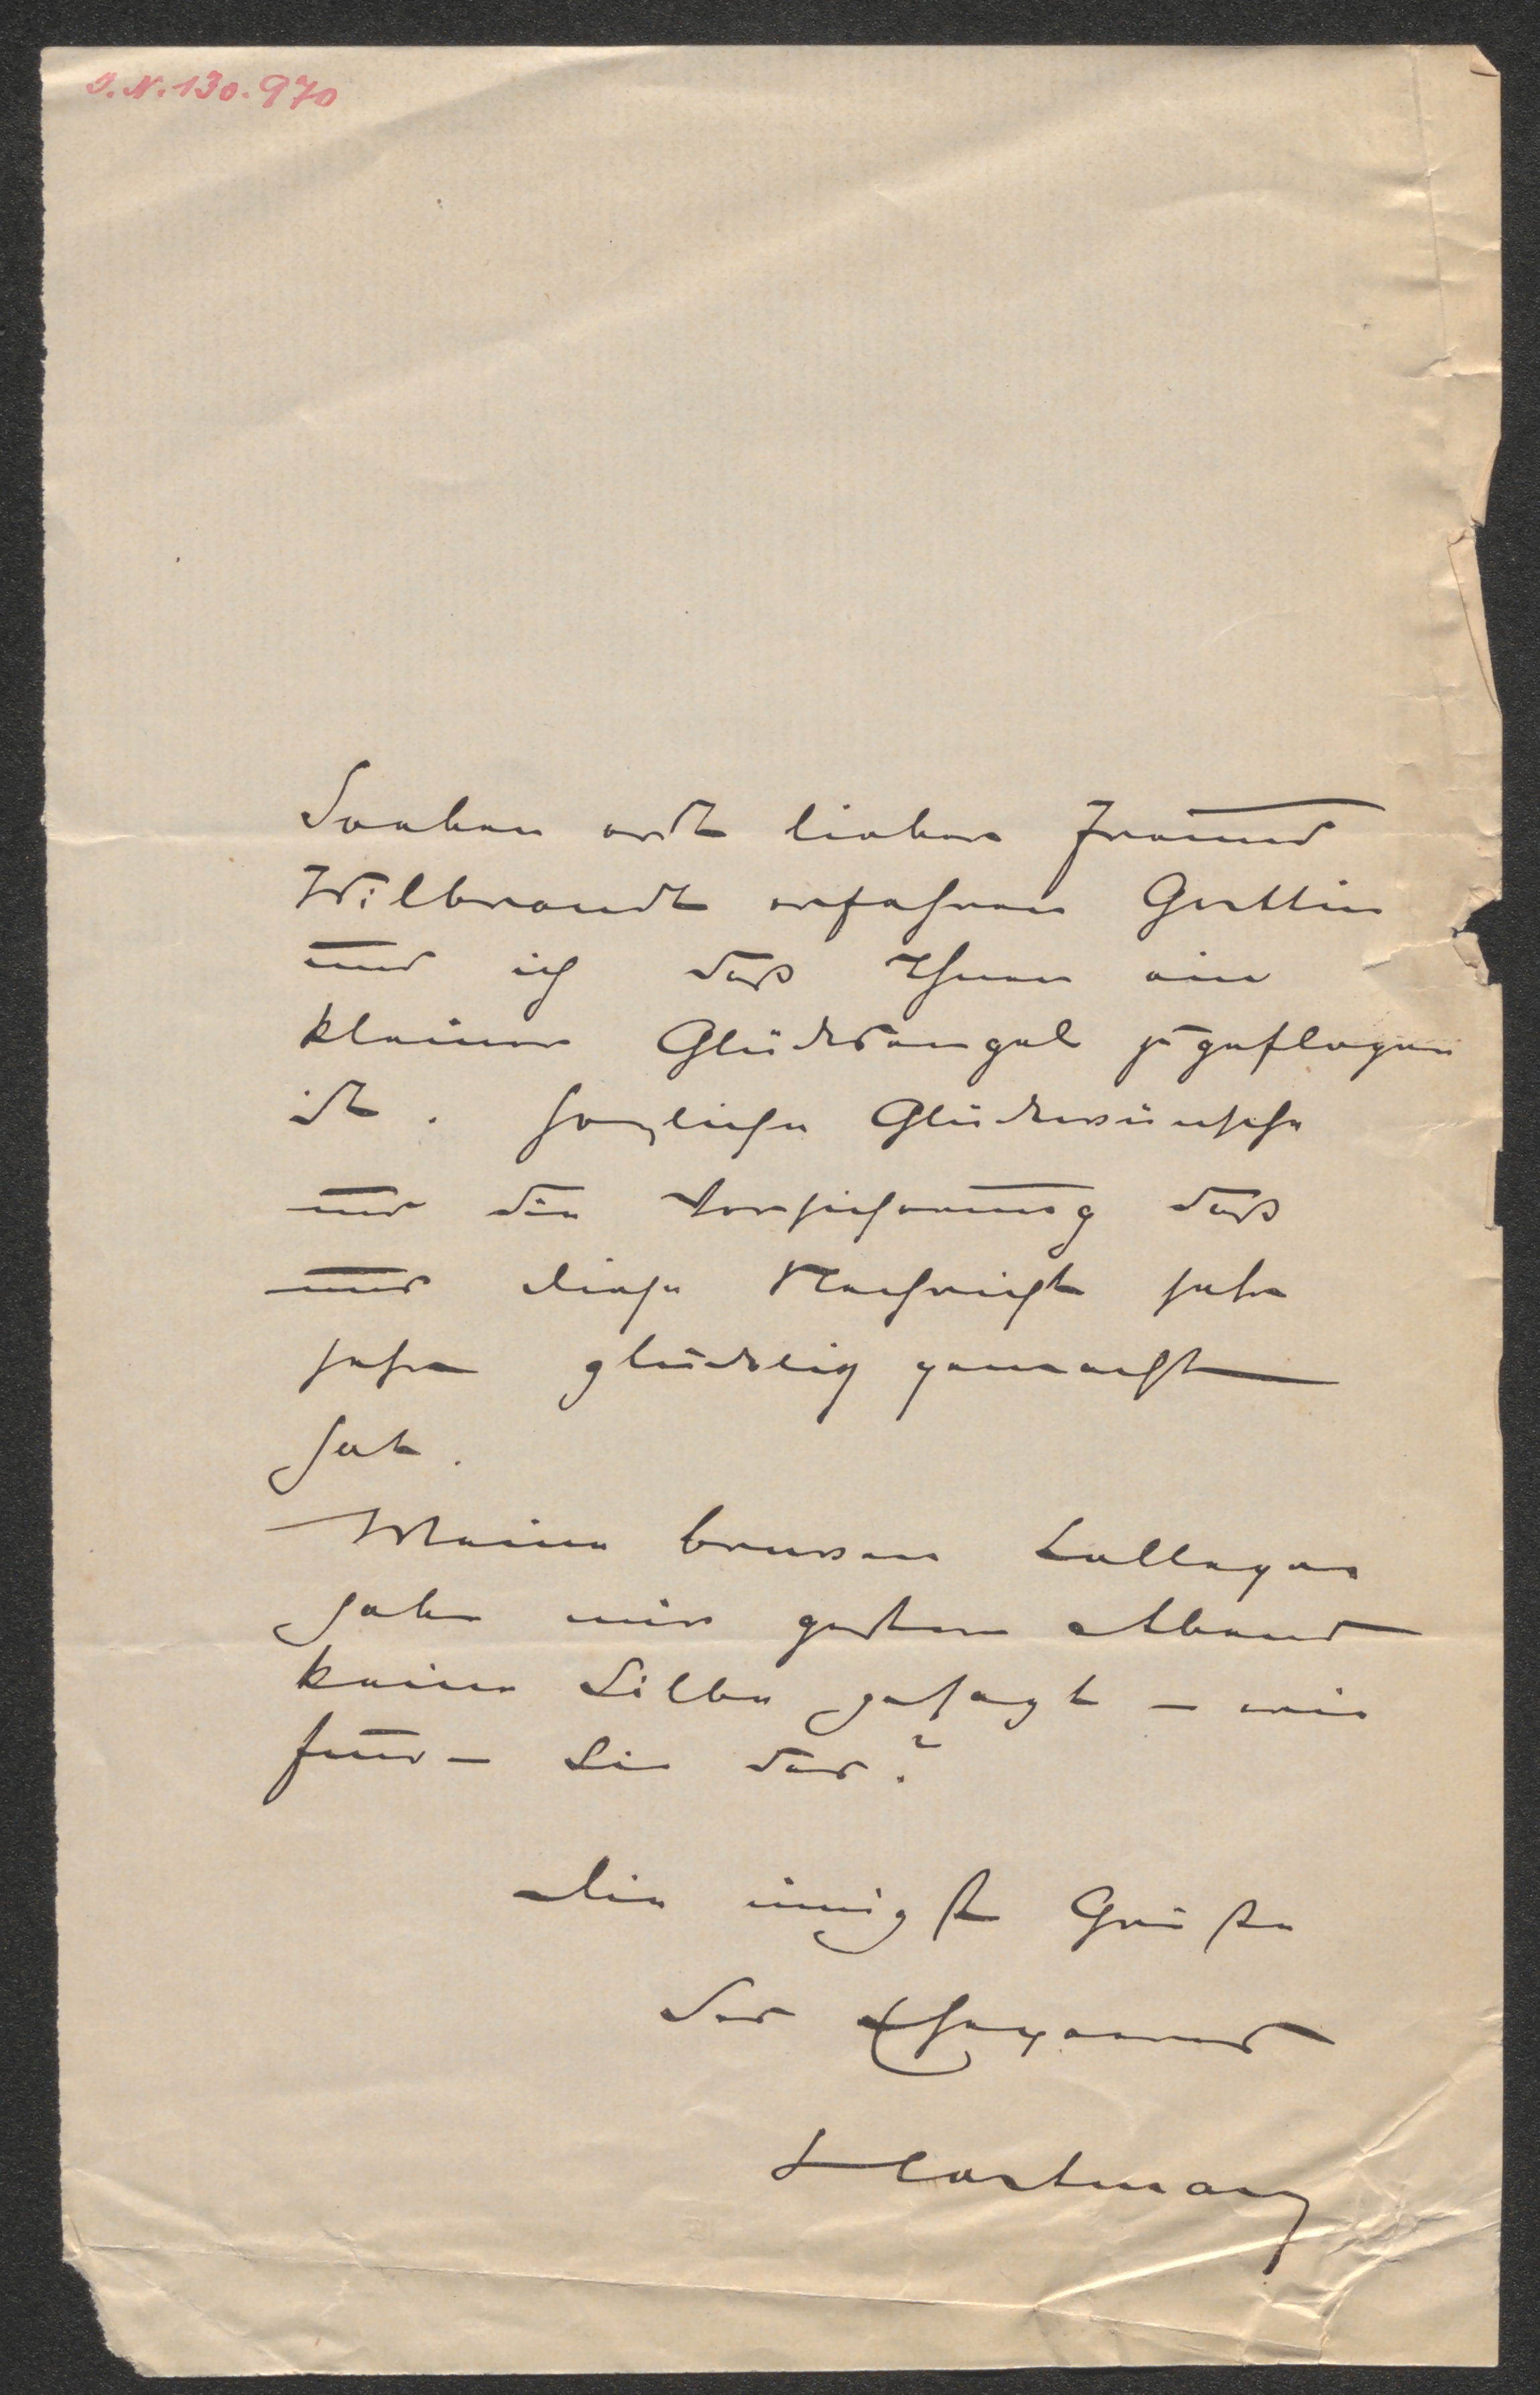 I.N. 130.970
Soeben erst lieber Freund
Wilbrandt erfahren Gattin
und ich daß Ihnen ein
kleiner Glücksengel zugeflogen
ist. Herzliche Glückwünsche
und die Versicherung daß
uns diese Nachricht sehr
sehr glücklich gemacht
hat.
Meine braven Collegen
haben mir gestern Abend
keine Silbe gesagt – wie
finden Sie das?
Die innigsten Grüße
des Ehepaares
Hartmann